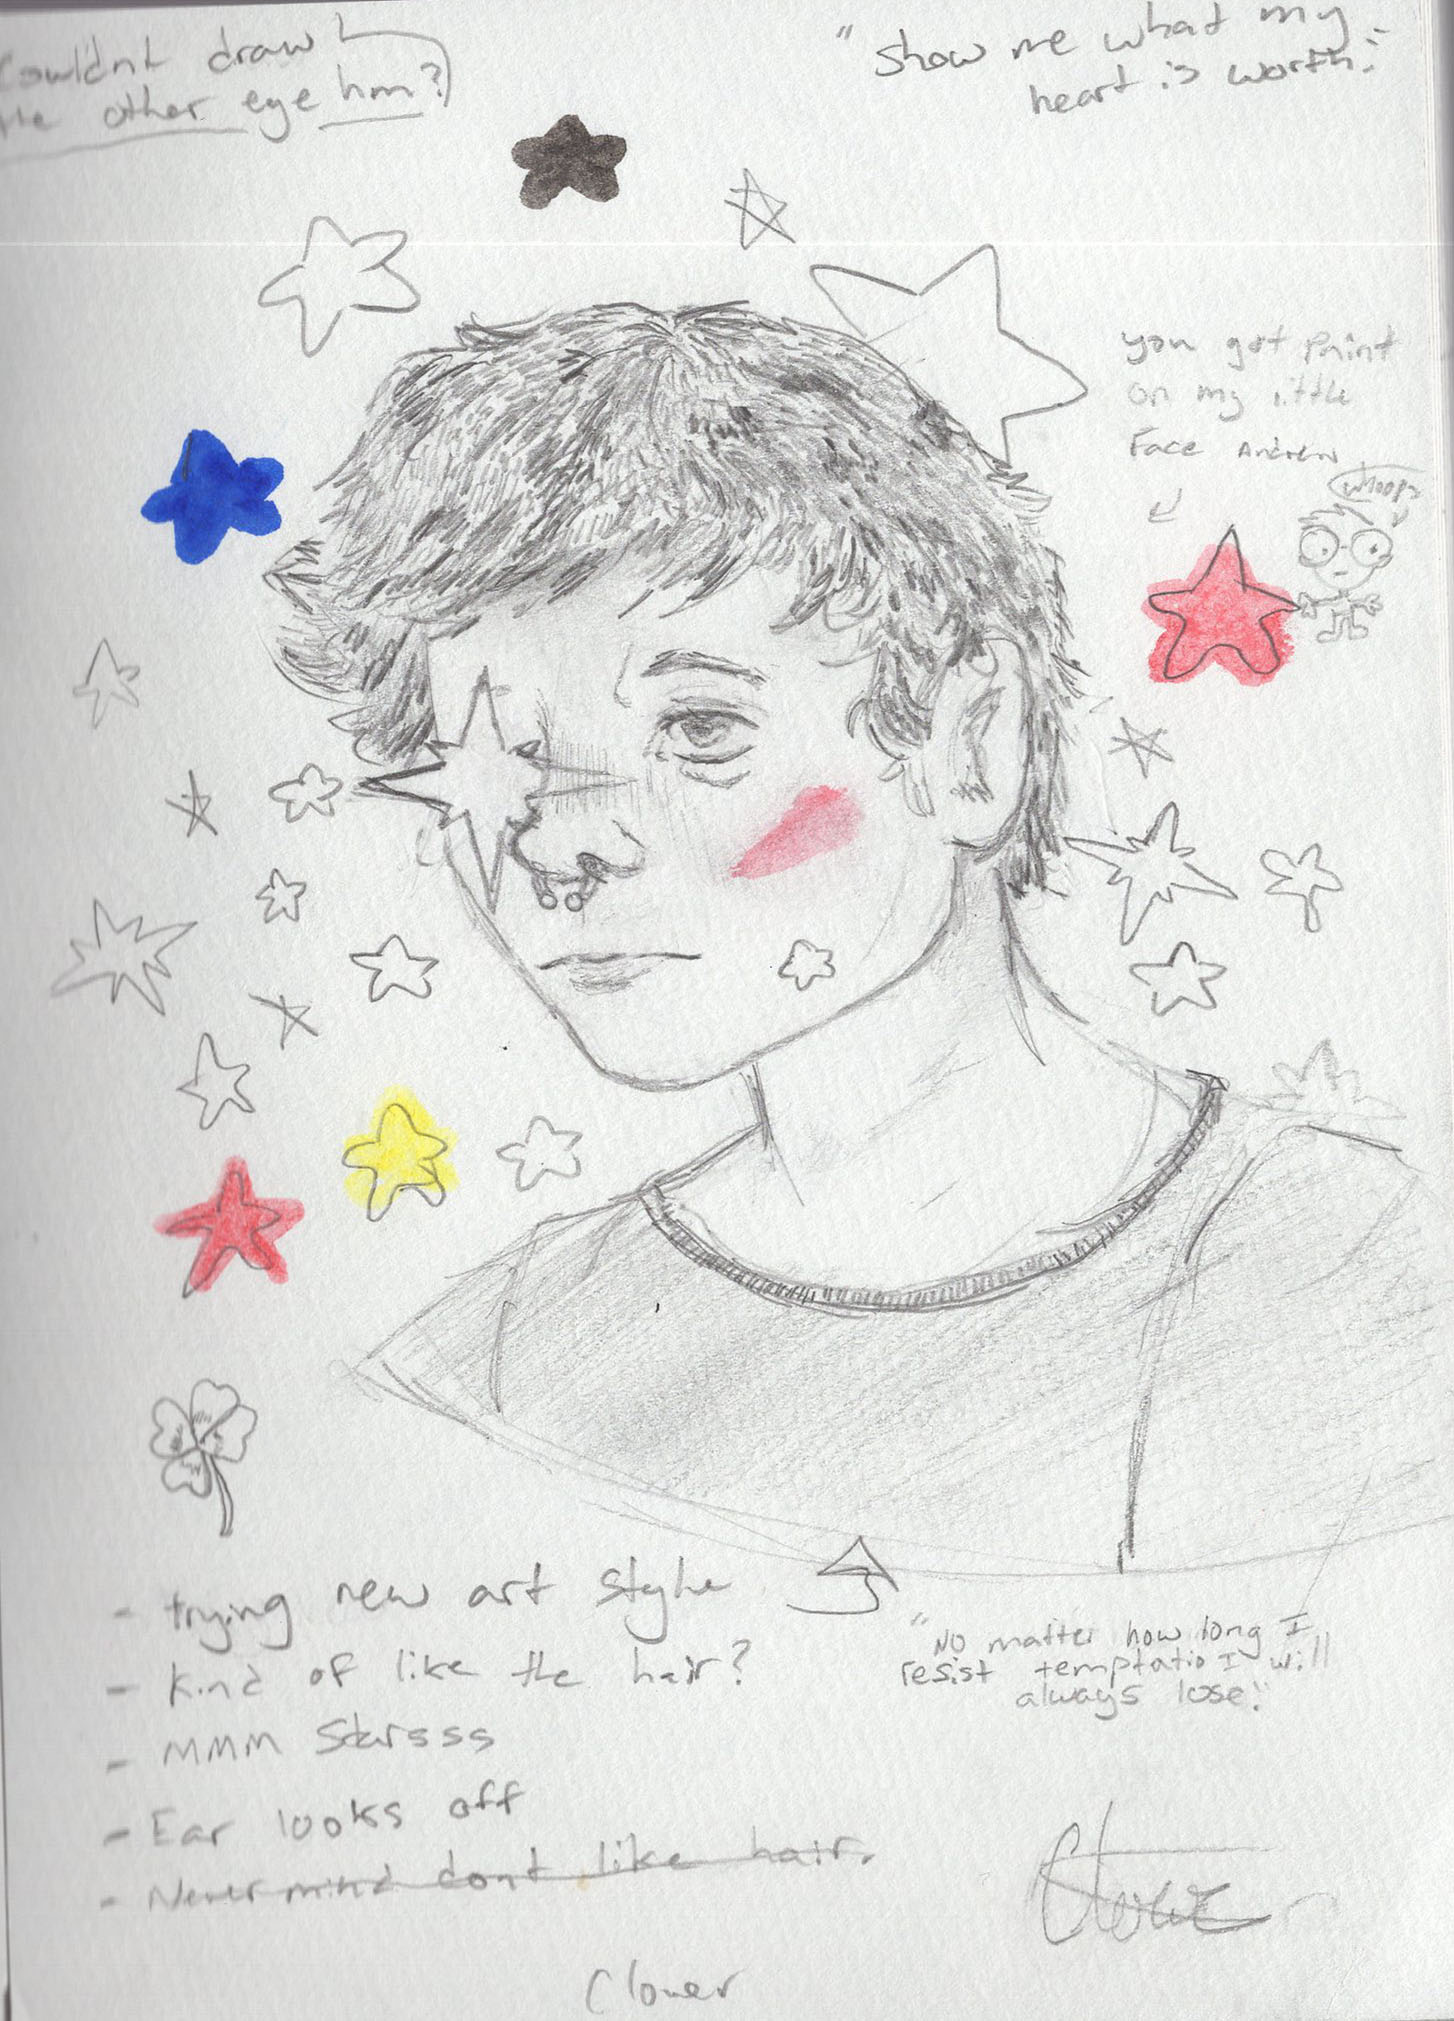 Couldnt draw
the other eye hm?
"show me what my
heart is worth."
you got paint
on my little
Face Andrew
whoops
- trying new art style
- Kind of like the hair?
- MMM Starsss
- Ear looks off
- Never mind dont like hair.
"No matter how long I
resist temptatio I will
always lose."
Clover